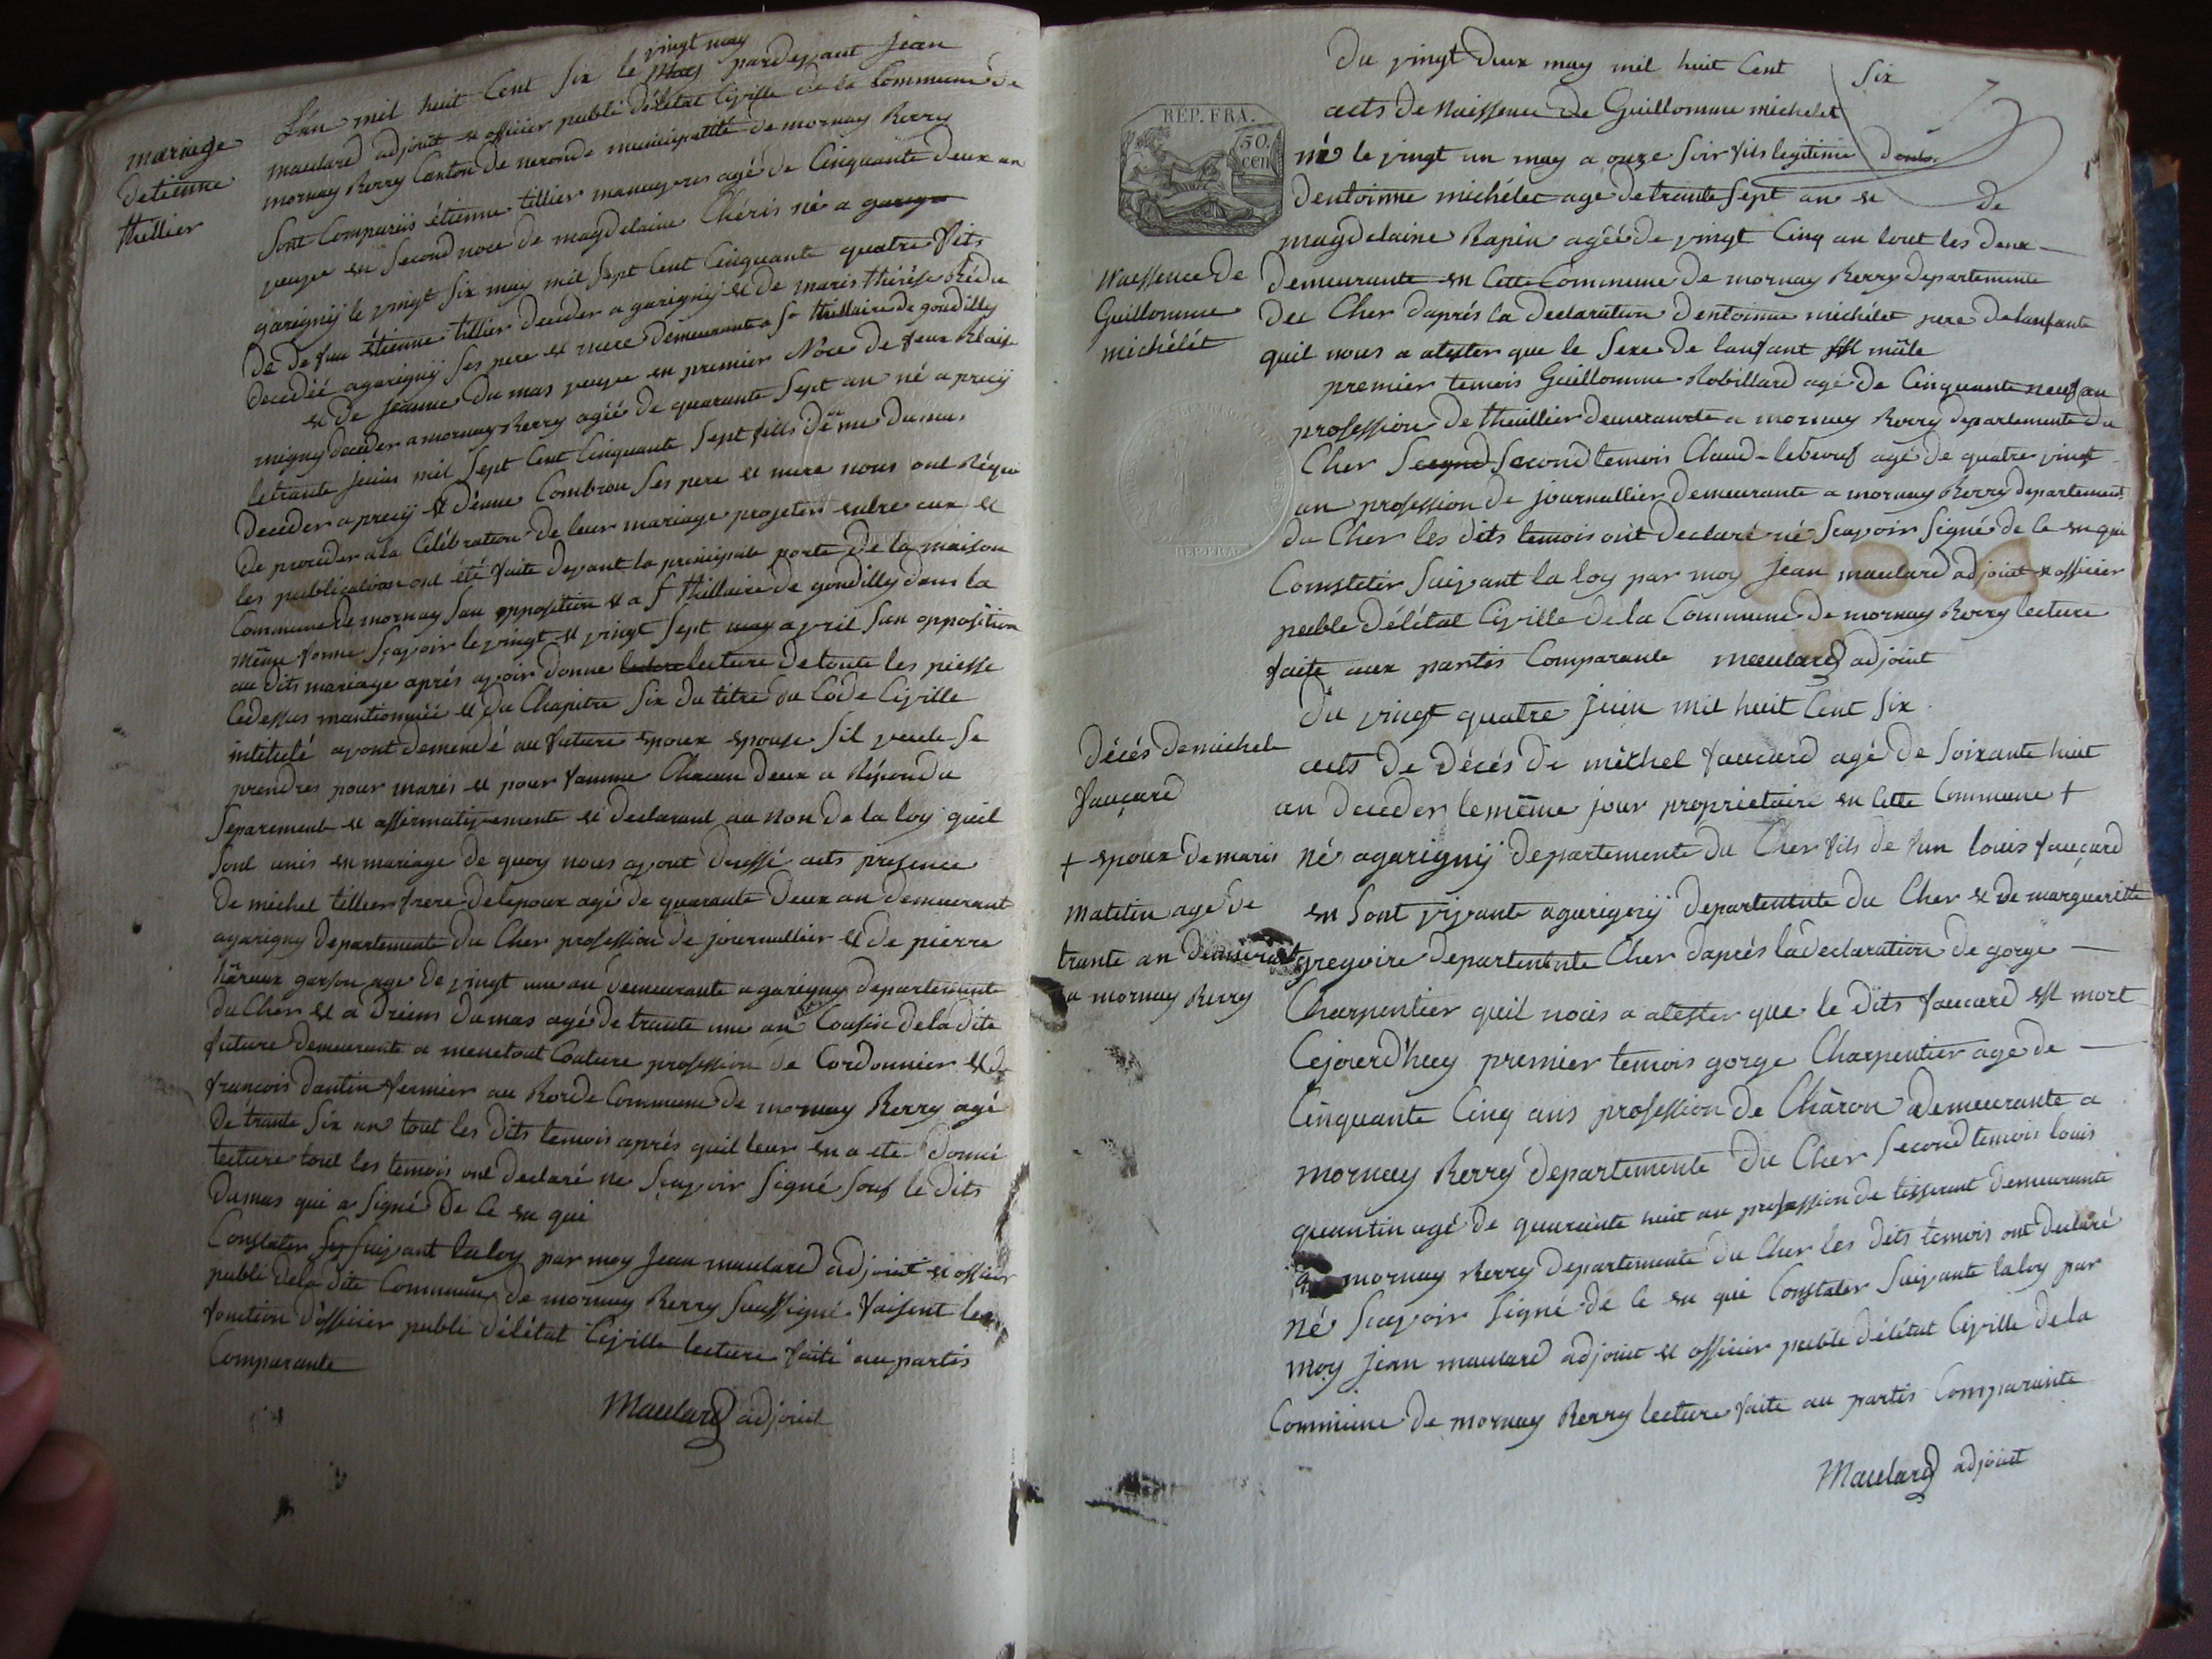 mariege
detienne
thellier
L'an mil huit Cent Six le vingt may pardevant Jean
maulard adjoint et officier publi délétat Civille de la Commune de
mornay Berry Canton de neronde municipalité de mornay Berry
Sont Comparus étienne tillier manuevres agé de Cinquante deux an
veuve en Second noce de magdelaine Chéris né a
garigny le vingt Six may mil Sept Cent Cinquante quatre fits
de defun étienne tillier deceder a garigny et de maris thérése
decedéé a garigny Ses pere et mere demeurant a St thillaire de gondilly
et de jeanne dumas veuve en premier Noce de feux Blaise
migny deceder a mornay Berry agéé de quarante Sept an né a precÿ
letrante juin mil Sept Cent Cinquante Sept fills de dumas
deceder a precÿ et denne Combron Ses pere et mere nous ont réqui
de proceder a la Célébration de leur mariage projeter entre eux et
les publication ont été faite devant la principale porte de la maison
Commune de mornay San opposition et a St thillaire de gondilly dans la
même forme Sçavoir le vingt et vingt Sept may avril San opposition
au dits mariage aprés avoir donne lecture de toute les piesse
Cidessus mantionnéé et du Chapitre Six du titre du Code Civille
intitulé ayont demendé au future epoux epouse Sil veule Se
prendres pour maris et pour famme Chacun deux a Répondu
Séparement et affirmativemente et declarant au non de la loy quil
Sont unis en mariage de quoy nous avont dressé acts presence
de michel tillier frere delepoux agé de quarante deux an demeurant
agarigny departemente du Cher profession de journallier et de pierre
garson age de vingt une an demeurante a garigny departemente
du Cher et a drien dumas agé de trante une an Cousin de la dite
future demeurante a menetout Couture profession de Cordonnier et de
francois dantin fermier au Borde Commune de mornay Berry agé
de trante Six an tout les dits temois aprés quil leur en a ete donné
lecture tout les temois ont declaré ne Sçavoir Signé Souf le dits
dumas qui a Signé De Ce en qui
Constater Suivant la loy par moy Jean maulard adjoint et officier
publi dela dite Commune de mornay Berry Soussigné faisent les
fonction dofficier publi délétat Civille lecture faite au partis
Comparante
Maulard adjoint
Du vingt deux may mil huit Cent Six
REP. FRA.
50.
cen
acts de Naissence de Guillomme michelet
né le vingt un may a onze Soir fils legitime
dentoinne michélet agé de trante Sept an et de
magdelaine Rapin agéé de vingt Cinq an tout les deux
demeurante en Cette Commune de mornay Berry departemente
Naissence de
Guillomme
michélét
du Cher daprés la declaration dentoinne michélet pere de lanfante
quil nous a atester que le Sexe de lanfant est mâle
premier temois Guillomme Robillard agé de Cinquante neuf an
profession de thuillier demeurante a mornay Berry departemente du
Cher Second temois Claud lebeuf agé de quatre vingt
an profession de journallier demeurante a mornay Berry departement
du Cher les dits temois ont declaré né Sçavoir Signé de Ce en qui
Constater Suivant la loy par moy Jean maulard adjoint et officier
puble délétat Civille dela Commune de mornay Berry lecture
faite aux partis Comparante maulard adjoint
du vingt quatre Juin mil huit Cent Six
Décés de michel
fauçard
acts de décés de michel faucard agé de Soixante huit
an deceder lemême jour proprietaire en Cette Commune +
+ epoux de maris
matelin agé de
trante an demeurant
a mornay Berry
né a garignÿ departemente du Cher fils de fun louis fauçard
en Sont vivante a garignÿ departemente du Cher et de margueritte
gregoire departemente Cher daprés la declaration de gorge
Charpentier quil nous a atester que le dits faucard est mort
Cejourd'huy premier temois gorge Charpentier age de
Cinquante Cinq ans profession de Châron demeurante a
mornay Berry departemente du Cher Second temois louis
quantin agé de quarante huit an profession de tisserant demeurante
a mornay Berry departemente du Cher les dits temois ont declaré
né Sçavoir Signé de Ce en qui Constater Suivante la loy par
moy Jean maulard adjoint et officier puble délétat Civille dela
Commune de mornay Berry lecture faite au partis Comparante
Maulard adjoint